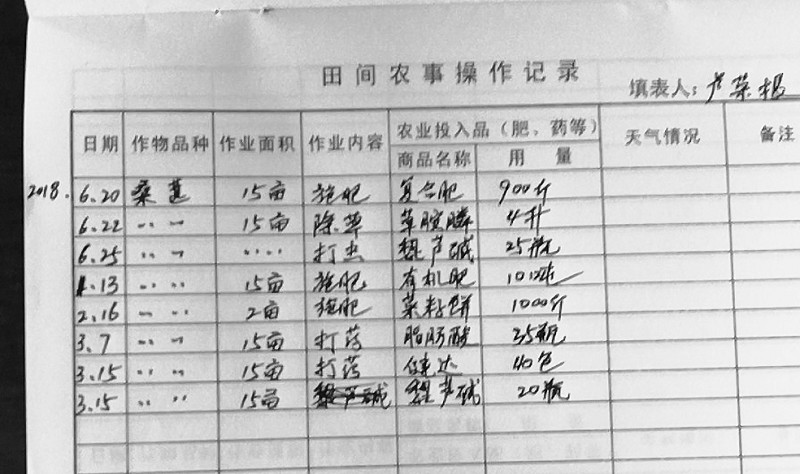 田间农事操作记录
填表人:卢菜根
日期 作物品种 作业面积 作业内容 农业投入品（肥、药等） 天气情况 备注
商品名称 用量
2018. 6.20 桑葚 15亩 施肥 复合肥 900斤
6.22 〃 〃 15亩 除草 草甘膦 4升
6.25 〃 〃 〃 〃 打虫 藜芦碱 25瓶
1.13 〃 〃 15亩 施肥 有机肥 10吨
2.16 〃 〃 2亩 施肥 菜籽饼 1000斤
3.7 〃 〃 15亩 打药 脂肪酸 35瓶
3.15 〃 〃 15亩 打药 健达 40包
3.15 〃 〃 15亩 藜芦碱 20瓶